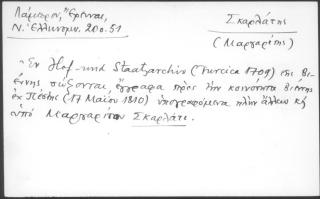 Λάμπρου, Ἔρευναι,
Σκαρλάτης
Ν. Ἑλληνομν. 20 σ. 51
(Μαργαρίτης)
"Ἐν Hof- und Staatsarchiv (Turcica 1709) τῆς Βι-
έννης σώζονται, ἔγγραφα πρὸς τὴν κοινότητα Βιέννης
ἐκ Πέστης (17 Μαΐου 1810) ὑπογραφόμενα πλὴν ἄλλων κ
ὑπὸ Μαργαρίτου Σκαρλάτι.